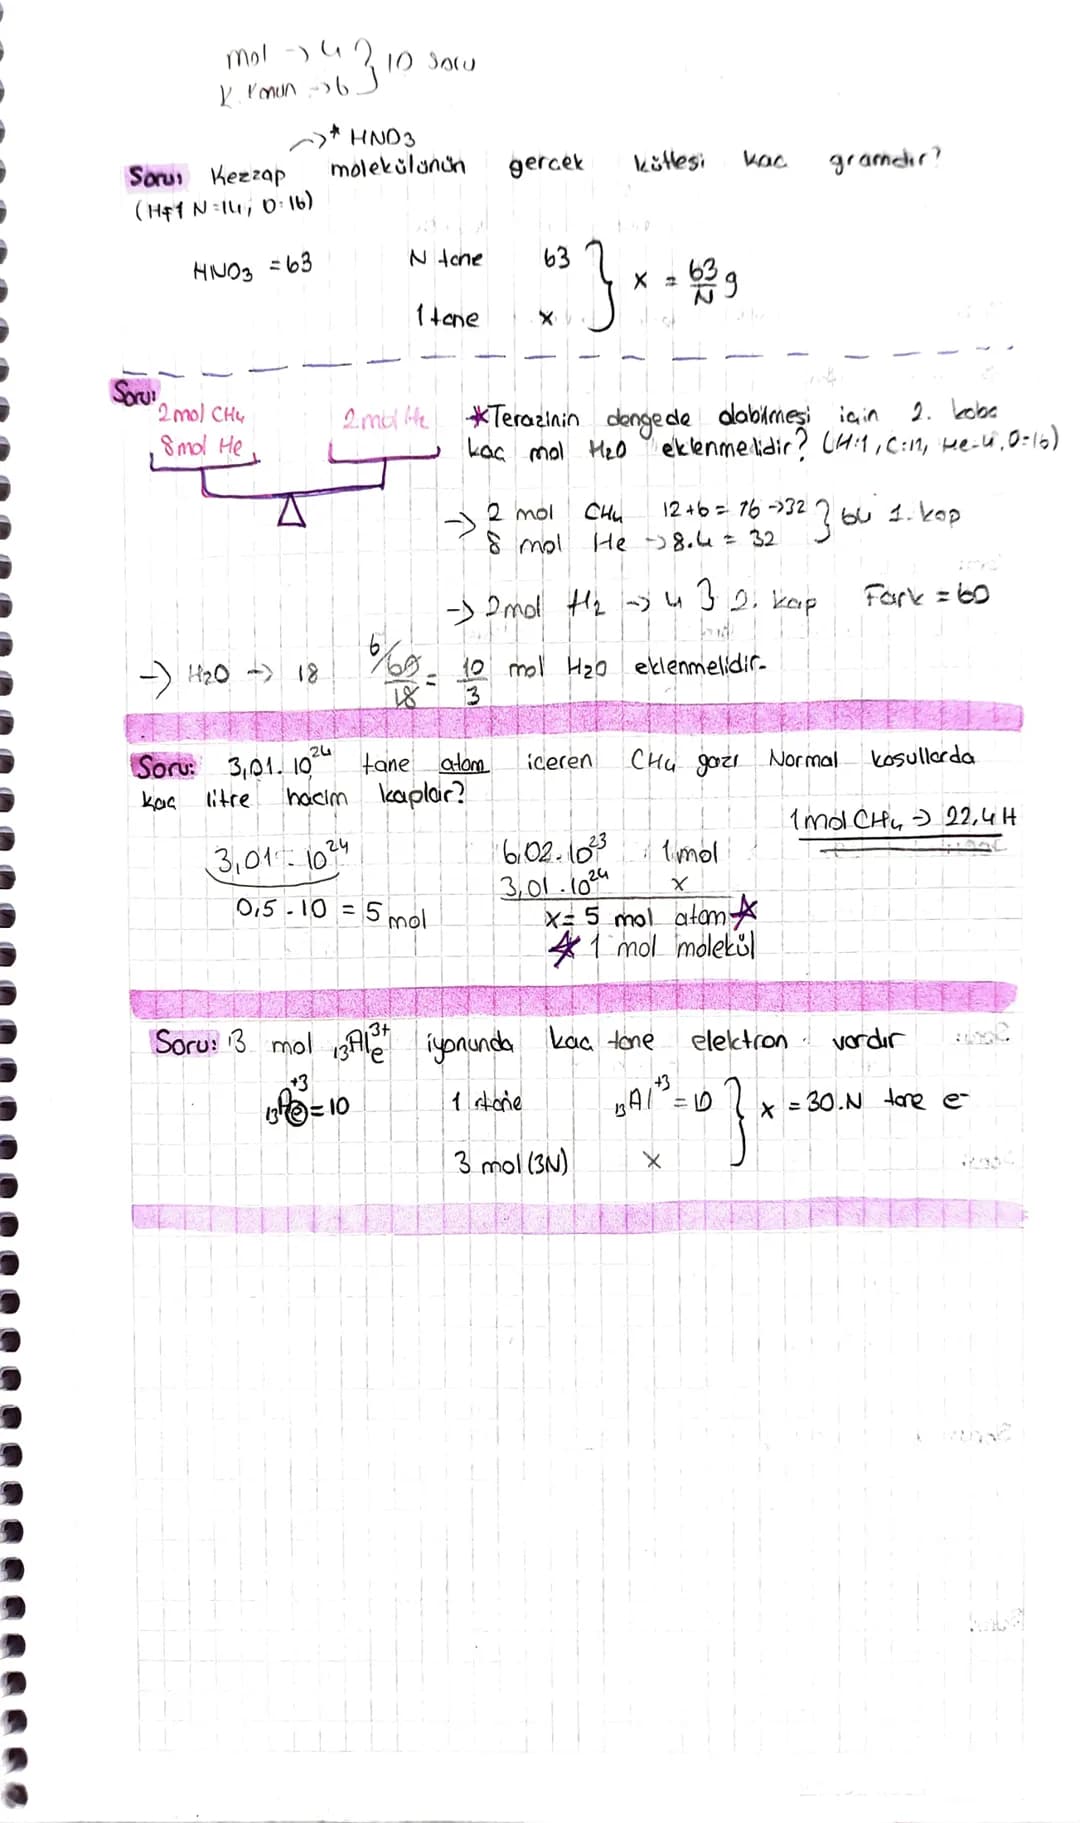 mol -> 4 } 10 soru
K. Kanun -> 6
->* HNO3
Soru: Kezzap molekülünün gercek kütlesi kac gramdır?
(H=1 N=14, O:16)
HNO3 = 63
N tane 63 } x = 63/N g
1 tane x
Soru:
2 mol CH4
8 mol He
2 mol He
*Terazinin dengede olabilmesi icin 2. kaba
kac mol H2O eklenmelidir? (H:1, C:12, He-4, O:16)
-> 2 mol CH4 12+6 = 16 ->32 } 64 1. kap
8 mol He -> 8.4 = 32
-> 2mol H2 -> 4 } 2. kap Fark = 60
-> H2O -> 18 60/18 = 10/3 mol H2O eklenmelidir.
Soru: 3,01.10^24 tane atom iceren CH4 gazı Normal kosullarda
kac litre hacim kaplar?
1 mol CH4 -> 22,4 H
3,01.10^24
0,5 - 10 = 5 mol
6,02.10^23 1 mol
3,01.10^24 x
x = 5 mol atom *
* 1 mol molekül
Soru: 3 mol 13Al3+ iyonunda kac tane elektron vardır
+3
= 10
1 tane 13Al+3 = 10 } x = 30.N tane e-
3 mol (3N) x